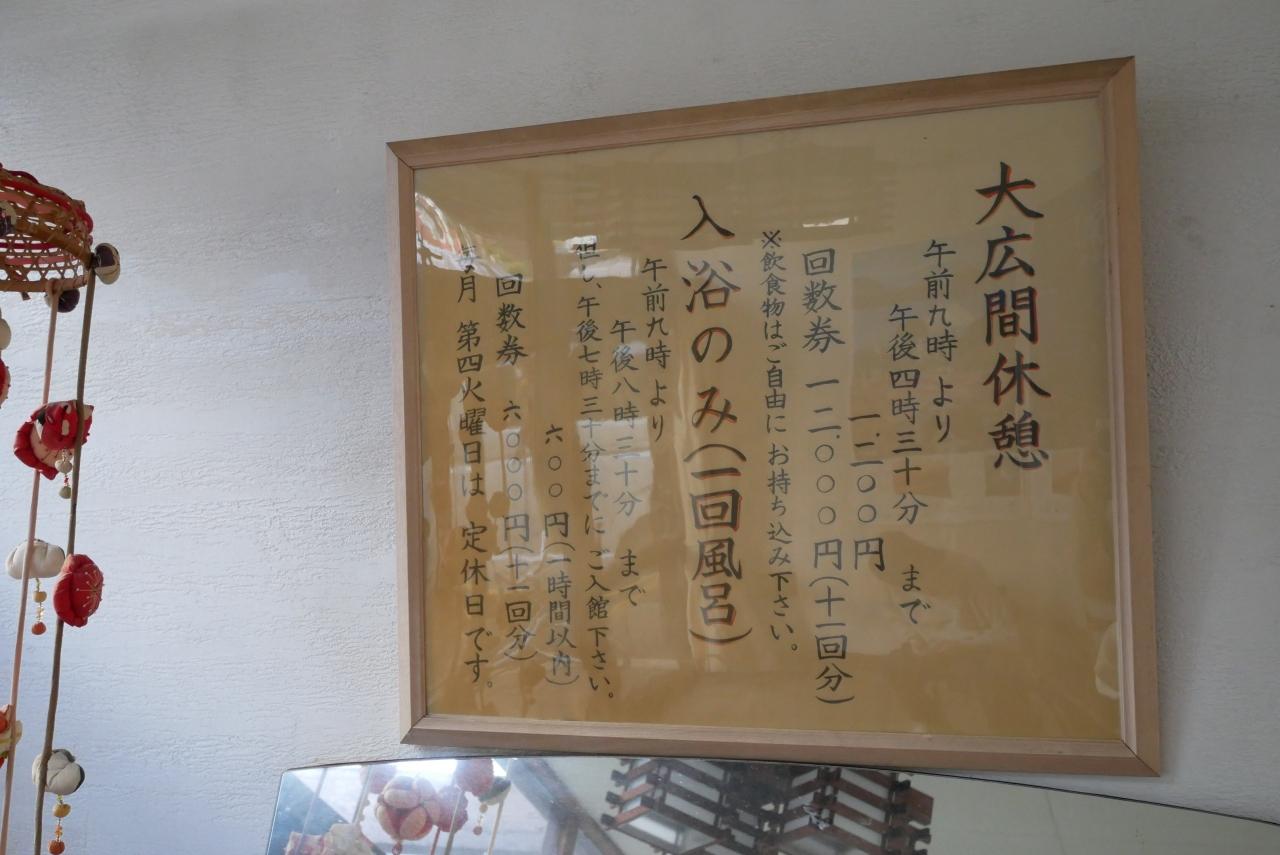 大広間休憩
午前九時より
午後四時三十分 まで
一、二〇〇円
回数券 一二、〇〇〇円(十一回分)
※飲食物はご自由に お持ち込み下さい。
入浴のみ(一回風呂)
午前九時より
午後八時三十分 まで
但し、午後七時三十分までに ご入館下さい。
六〇〇円(一時間以内)
回数券 六、〇〇〇円(十一回分)
毎月 第四火曜日は 定休日です。